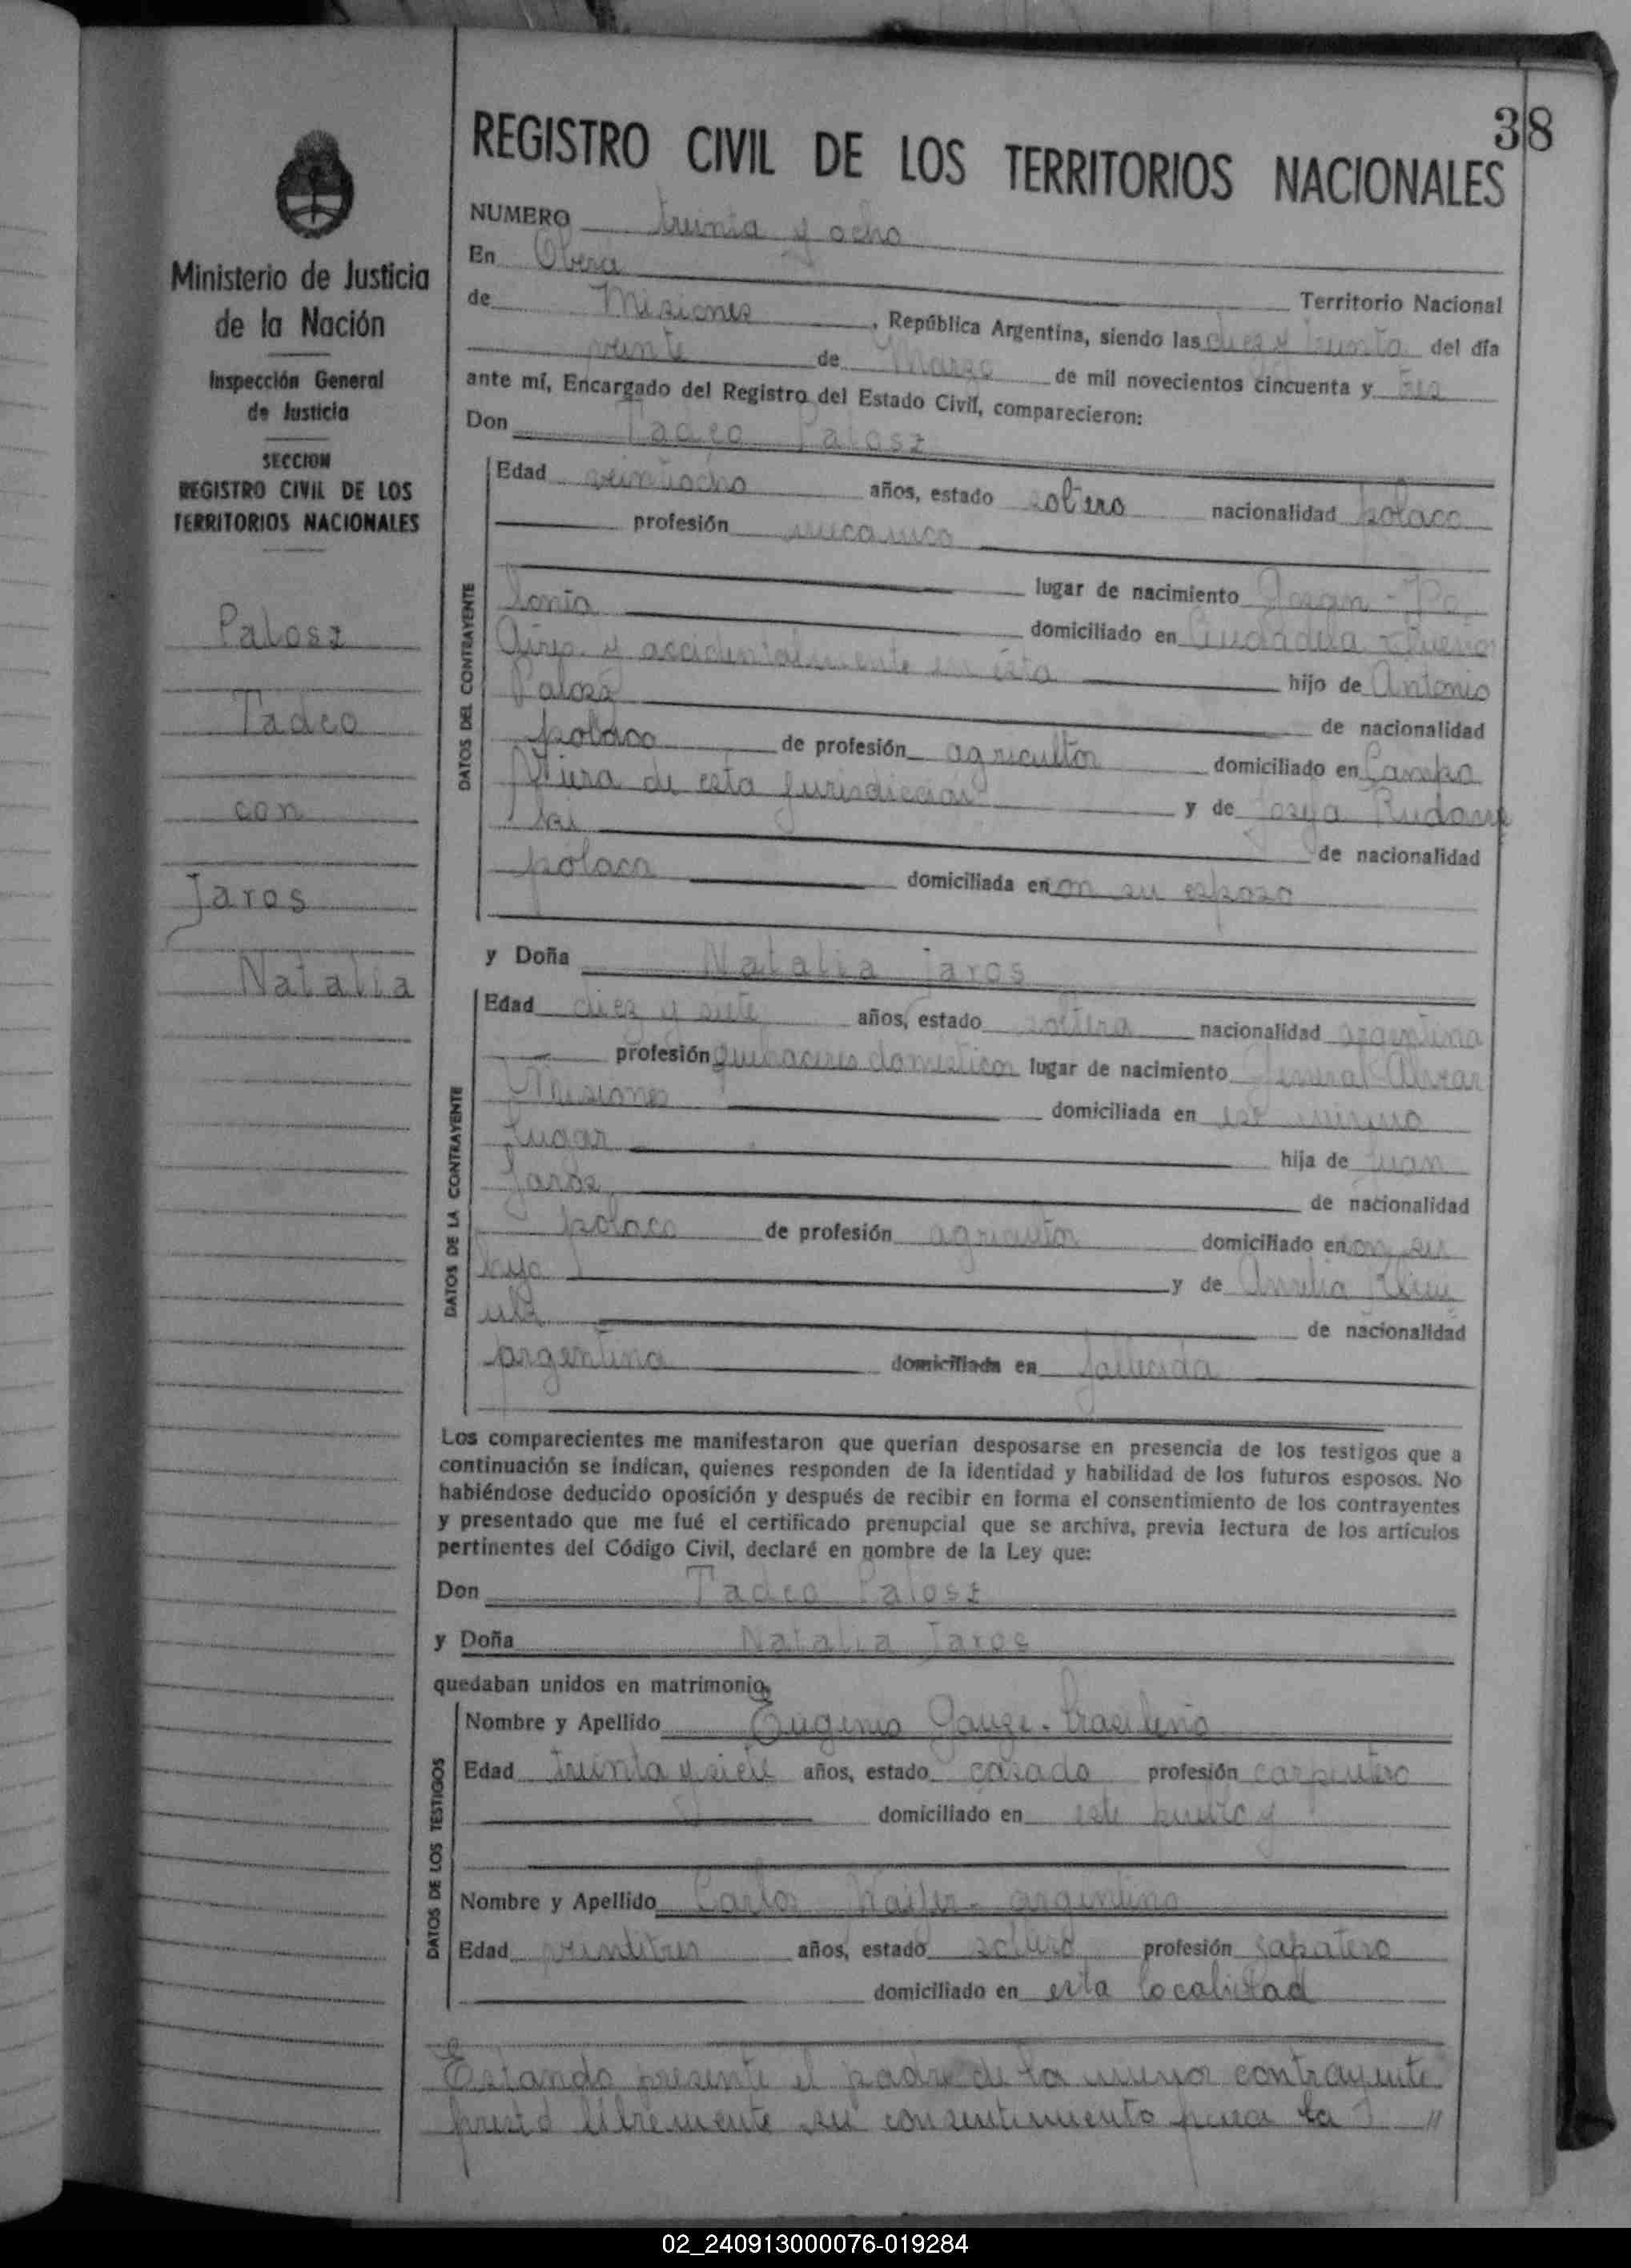 38
REGISTRO CIVIL DE LOS TERRITORIOS NACIONALES
Ministerio de Justicia
de la Nación
Inspección General
de Justicia
SECCION
REGISTRO CIVIL DE LOS
TERRITORIOS NACIONALES
Palosz
Tadeo
con
Jaros
Natalia
NUMERO treinta y ocho
En Oberá
Territorio Nacional
de Misiones, República Argentina, siendo las diez y treinta del día
veinte de Marzo de mil novecientos cincuenta y tres
ante mí, Encargado del Registro del Estado Civil, comparecieron:
Don Tadeo Palosz
DATOS DEL CONTRAYENTE
Edad veintiocho años, estado soltero nacionalidad polaco
profesión mecanico
lugar de nacimiento - Po
lonia domiciliado en Ciudadela - Buenos
Aires y accidentalmente en ésta hijo de Antonio
Palosz de nacionalidad
polaco de profesión agricultor domiciliado en Campo
Viera de esta jurisdiccion y de
ski de nacionalidad
polaca domiciliada en on su esposo
y Doña Natalia Jaros
DATOS DE LA CONTRAYENTE
Edad diez y siete años, estado soltera nacionalidad argentina
profesión quehaceres domesticos lugar de nacimiento General Alvear
Misiones domiciliada en ese mismo
lugar hija de Juan
Jaros de nacionalidad
polaco de profesión agricultor domiciliado en on su
hija y de
de nacionalidad
argentina domiciliada en fallecida
Los comparecientes me manifestaron que querían desposarse en presencia de los testigos que a
continuación se indican, quienes responden de la identidad y habilidad de los futuros esposos. No
habiéndose deducido oposición y después de recibir en forma el consentimiento de los contrayentes
y presentado que me fué el certificado prenupcial que se archiva, previa lectura de los artículos
pertinentes del Código Civil, declaré en nombre de la Ley que:
Don Tadeo Palosz
y Doña Natalia Jaros
quedaban unidos en matrimonio,
DATOS DE LOS TESTIGOS
Nombre y Apellido Eugenio - brasileño
Edad treinta y siete años, estado casado profesión carpintero
domiciliado en este pueblo y
Nombre y Apellido Carlos - argentino
Edad veintitres años, estado soltero profesión zapatero
domiciliado en esta localidad
Estando presente el padre de la menor contrayente
prestó libremente su consentimiento para la "
02_240913000076-019284